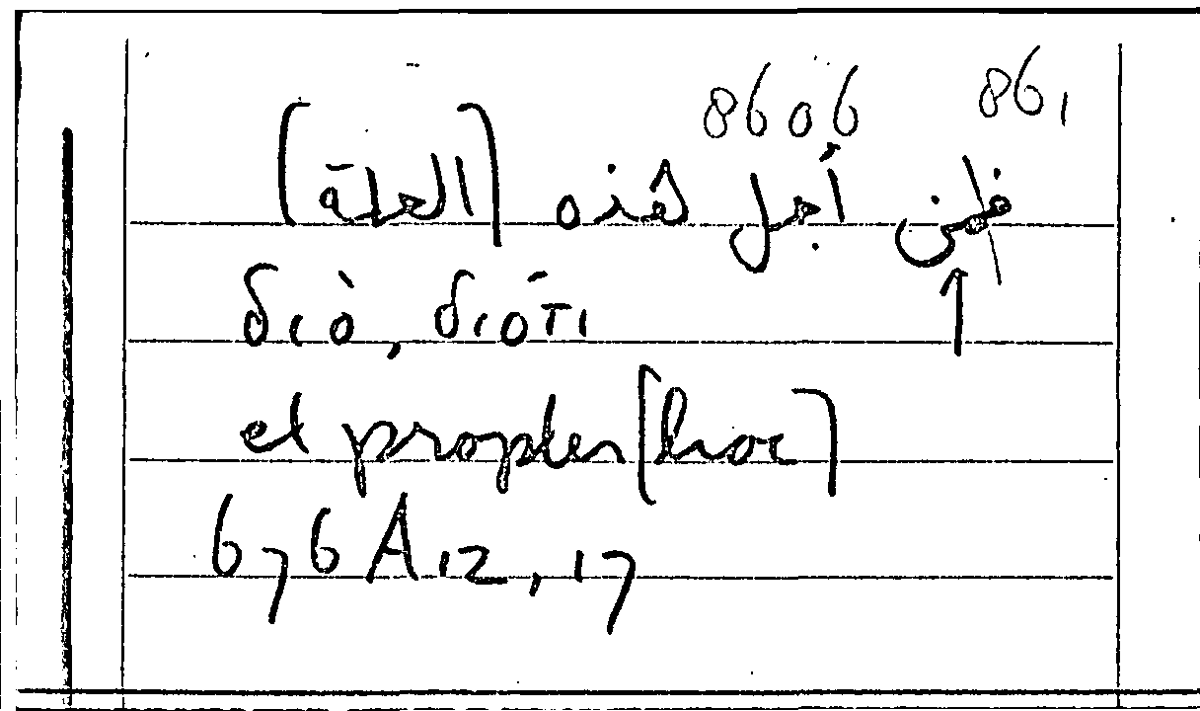 8606 861
فمن أجل هذه [العلة]
διὸ, διότι
et propter [hoc]
676A12,17